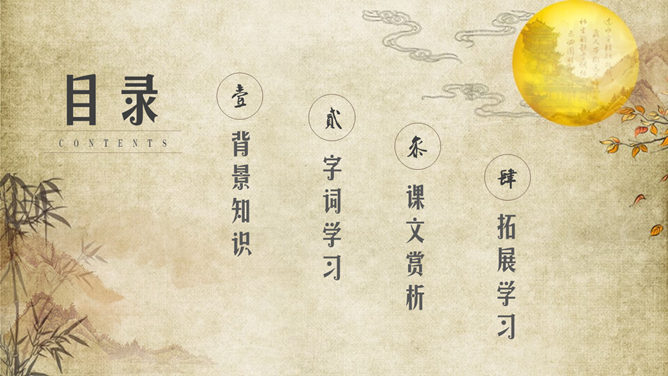 目录
CONTENTS
壹
背景知识
贰
字词学习
叁
课文赏析
肆
拓展学习